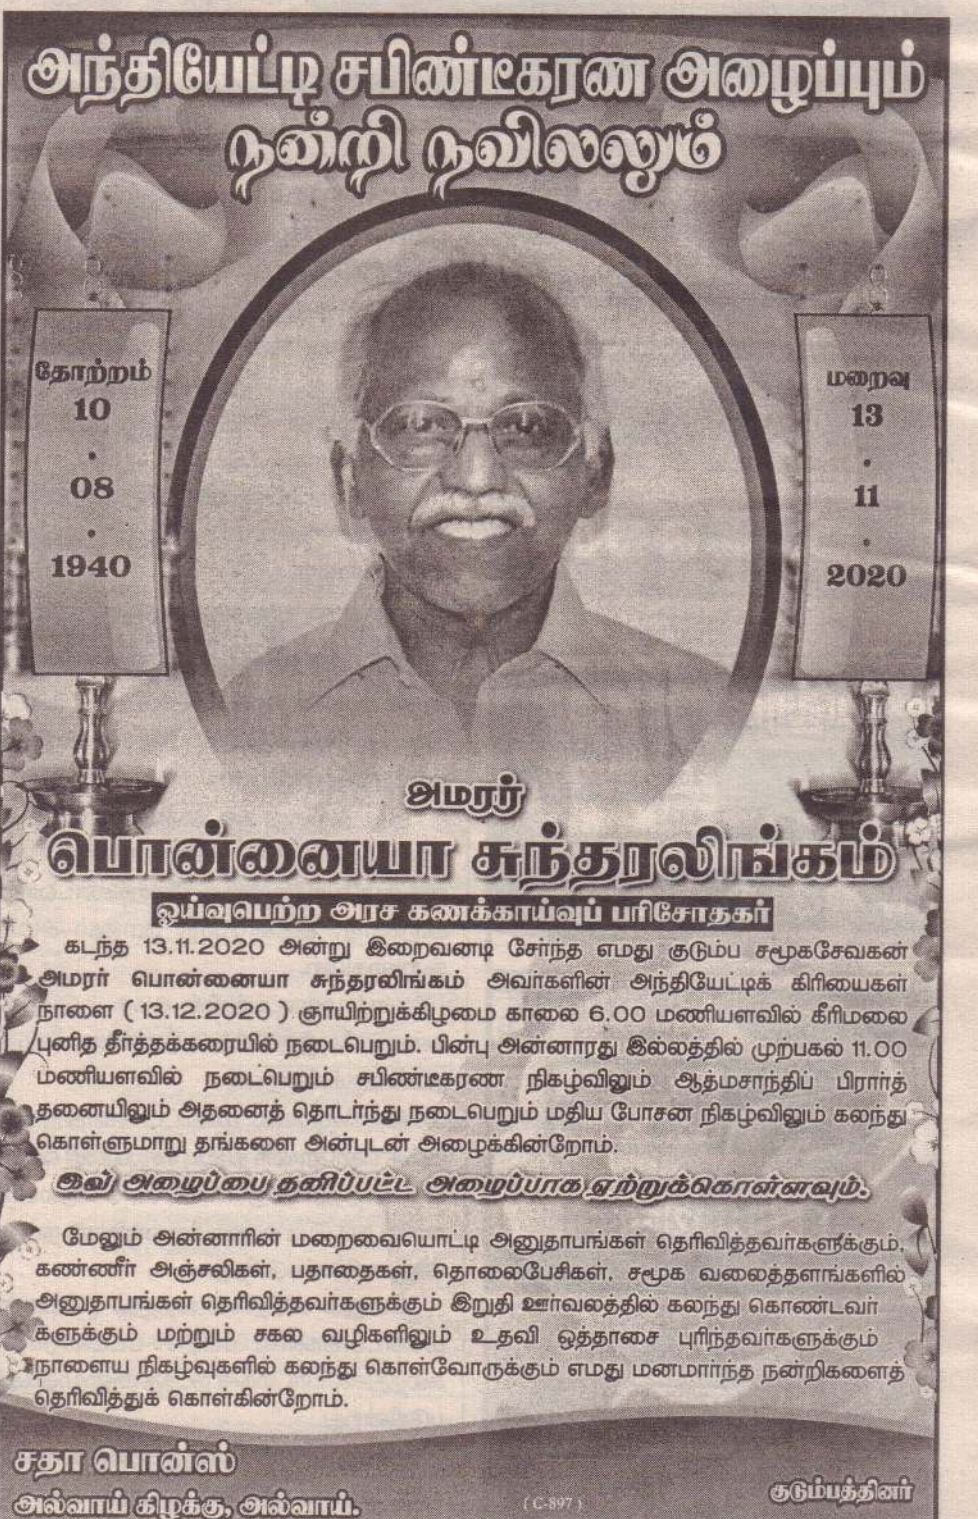 அந்தியேட்டி சபிண்டீகரண அழைப்பும்
நன்றி நவிலலும்
தோற்றம்
10
.
08
.
1940
மறைவு
13
.
11
.
2020
அமரர்
பொன்னையா சுந்தரலிங்கம்
ஓய்வுபெற்ற அரச கணக்காய்வுப் பரிசோதகர்
கடந்த 13.11.2020 அன்று இறைவனடி சேர்ந்த எமது குடும்ப சமூகசேவகன்
அமரர் பொன்னையா சுந்தரலிங்கம் அவர்களின் அந்தியேட்டிக் கிரியைகள்
நாளை ( 13.12.2020 ) ஞாயிற்றுக்கிழமை காலை 6.00 மணியளவில் கீரிமலை
புனித தீர்த்தக்கரையில் நடைபெறும். பின்பு அன்னாரது இல்லத்தில் முற்பகல் 11.00
மணியளவில் நடைபெறும் சபிண்டீகரண நிகழ்விலும் ஆத்மசாந்திப் பிரார்த்
தனையிலும் அதனைத் தொடர்ந்து நடைபெறும் மதிய போசன நிகழ்விலும் கலந்து
கொள்ளுமாறு தங்களை அன்புடன் அழைக்கின்றோம்.
இவ் அழைப்பை தனிப்பட்ட அழைப்பாக ஏற்றுக்கொள்ளவும்.
மேலும் அன்னாரின் மறைவையொட்டி அனுதாபங்கள் தெரிவித்தவர்களுக்கும்,
கண்ணீர் அஞ்சலிகள், பதாதைகள், தொலைபேசிகள், சமூக வலைத்தளங்களில்
அனுதாபங்கள் தெரிவித்தவர்களுக்கும் இறுதி ஊர்வலத்தில் கலந்து கொண்டவர்
களுக்கும் மற்றும் சகல வழிகளிலும் உதவி ஒத்தாசை புரிந்தவர்களுக்கும்
நாளைய நிகழ்வுகளில் கலந்து கொள்வோருக்கும் எமது மனமார்ந்த நன்றிகளைத்
தெரிவித்துக் கொள்கின்றோம்.
சதா பொன்ஸ்
அல்வாய் கிழக்கு, அல்வாய்.
( C-897 )
குடும்பத்தினர்